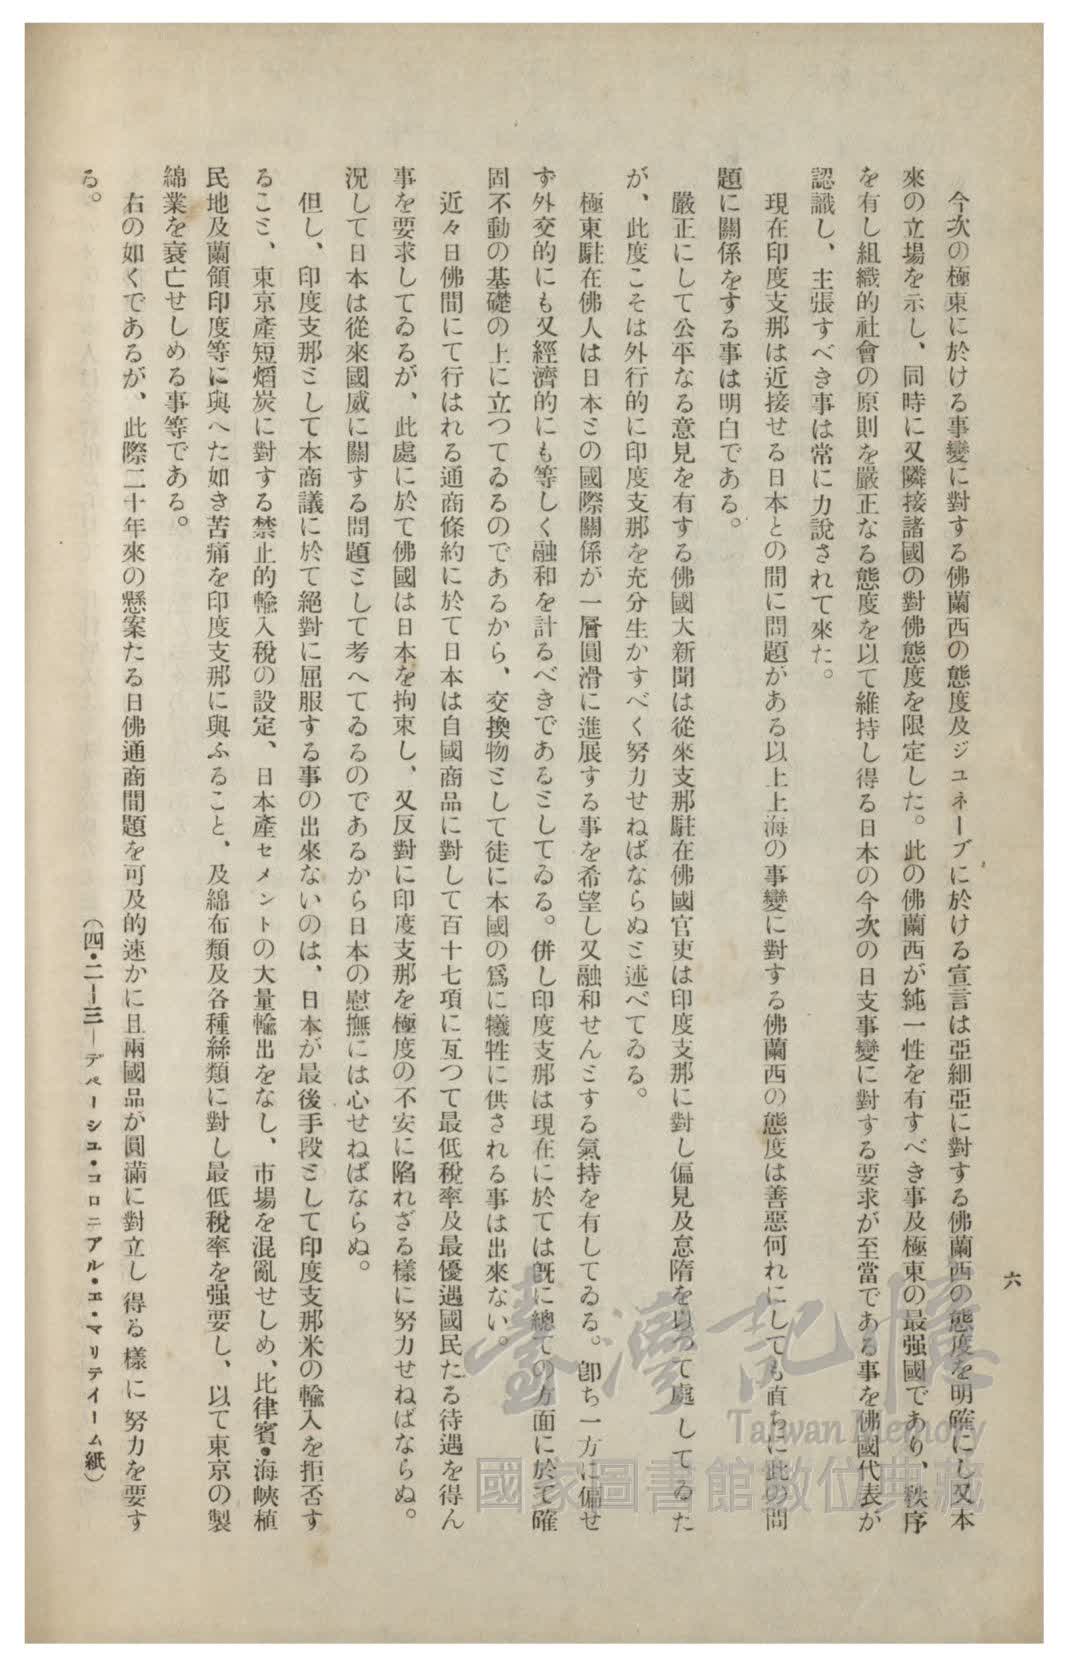 六
今次の極東に於ける事變に對する佛蘭西の態度及ジユネーブに於ける宣言は亞細亞に對する佛蘭西の態度を明確にし又本
來の立場を示し、同時に又隣接諸國の對佛態度を限定した。此の佛蘭西が純一性を有すべき事及極東の最强國であり、秩序
を有し組織的社會の原則を嚴正なる態度を以て維持し得る日本の今次の日支事變に對する要求が至當である事を佛國代表が
認識し、主張すべき事は常に力說されて來た。
現在印度支那は近接せる日本との間に問題がある以上上海の事變に對する佛蘭西の態度は善惡何れにしても直ちに此の問
題に關係をする事は明白である。
嚴正にして公平なる意見を有する佛國大新聞は從來支那駐在佛國官吏は印度支那に對し偏見及怠隋を以つて處してゐた
が、此度こそは外行的に印度支那を充分生かすべく努力せねばならぬミ述べてゐる。
極東駐在佛人は日本ミの國際關係が一層圓滑に進展する事を希望し又融和せんミする氣持を有してゐる。卽ち一方に偏せ
ず外交的にも又經濟的にも等しく融和を計るべきであるミしてゐる。併し印度支那は現在に於ては旣に總ての方面に於て確
固不動の基礎の上に立つてゐるのであるから、交換物ミして徒に本國の爲に犧牲に供される事は出來ない。
近々日佛間にて行はれる通商條約に於て日本は自國商品に對して百十七項に亙つて最低稅率及最優遇國民たる待遇を得ん
事を要求してゐるが、此處に於て佛國は日本を拘束し、又反對に印度支那を極度の不安に陷れざる樣に努力せねばならぬ。
況して日本は從來國威に關する問題ミして考へてゐるのであるから日本の慰撫には心せねばならぬ。
但し、印度支那ミして本商議に於て絕對に屈服する事の出來ないのは、日本が最後手段ミして印度支那米の輸入を拒否す
るこミ、東京產短熖炭に對する禁止的輸入稅の設定、日本產セメントの大量輸出をなし、市場を混亂せしめ、比律賓・海峽植
民地及蘭領印度等に與へた如き苦痛を印度支那に與ふること、及綿布類及各種絲類に對し最低稅率を强要し、以て東京の製
綿業を衰亡せしめる事等である。
右の如くであるが、此際二十年來の懸案たる日佛通商問題を可及的速かに且兩國品が圓滿に對立し得る樣に努力を要す
る。
（四・二ー三ーデペーシユ・コロニアル・エ・マリテイーム紙）
臺灣記憶
Taiwan Memory
國家圖書館數位典藏